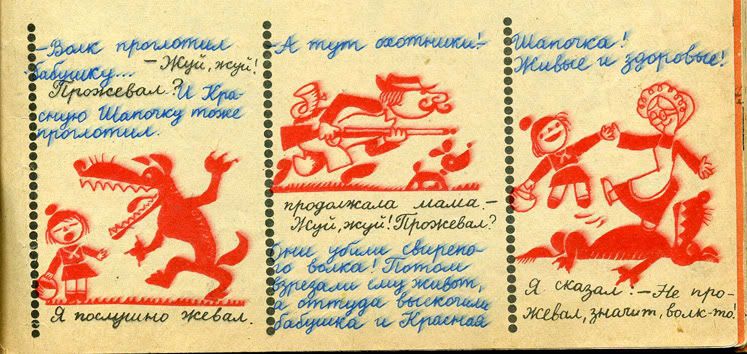 —Волк проглотил
бабушку...
—Жуй, жуй!
Прожевал? И Кра-
сную Шапочку тоже
проглотил.
Я послушно жевал.
—А тут охотники!—
продолжала мама.—
Жуй, жуй! Прожевал?
Они убили свирепо-
го волка! Потом
взрезали ему живот,
а оттуда выскочили
бабушка и Красная
Шапочка!
Живые и здоровые!
Я сказал:—Не про-
жевал, значит, волк-то!